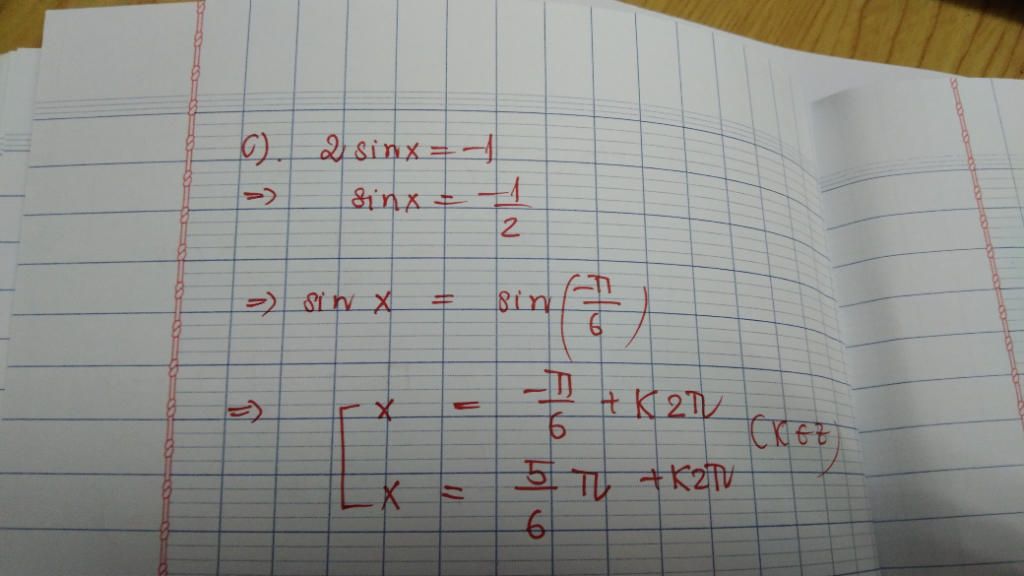 c). 2 sin x = -1
=> sin x = -1/2
=> sin x = sin(-π/6)
=> [ x = -π/6 + K2π
x = 5/6 π + K2π (K ∈ Z)